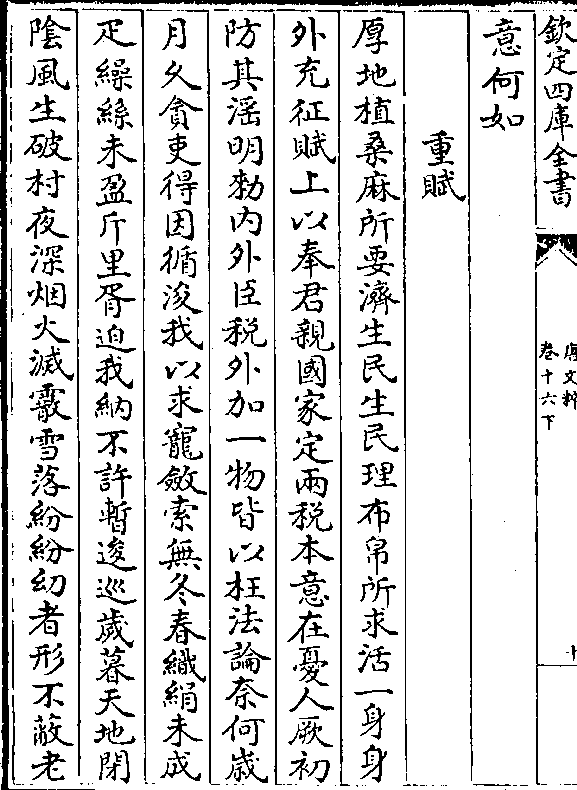 欽定四庫全書
唐文粹
卷十六下
十
意何如
重賦
厚地植桑麻所要濟生民生民理布帛所求活一身身
外充征賦上以奉君親國家定兩税本意在憂人厥初
防其滛明勑内外臣税外加一物皆以枉法論奈何歳
月久貪吏得因循浚我以求寵斂索無冬春織絹未成
疋繰絲未盈斤里胥迫我納不許暫逡巡歲暮天地閉
隂風生破村夜深烟火滅霰雪落紛紛幼者形不蔽老